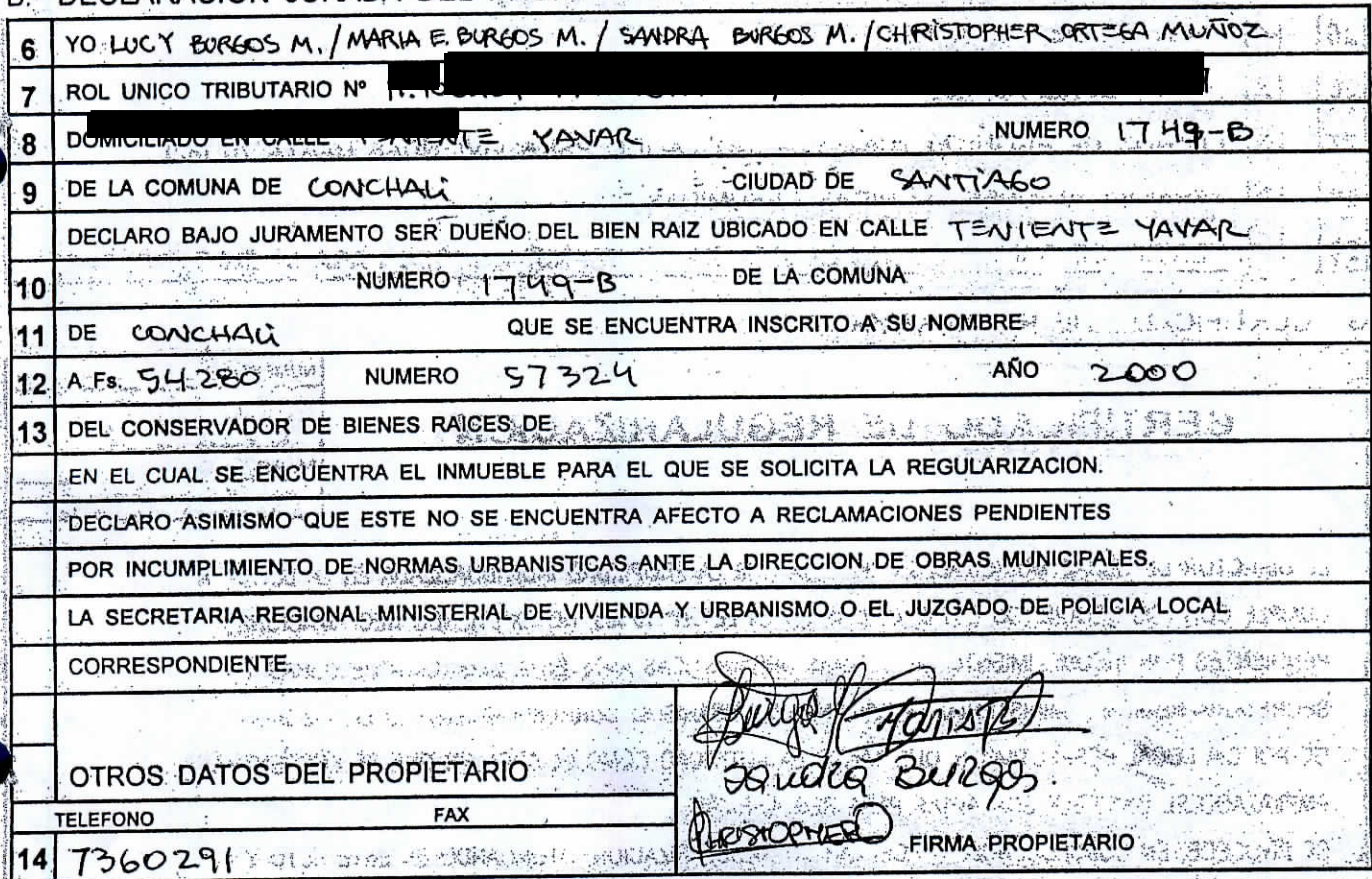 B. DECLARACION JURADA DEL
6 YO LUCY BURGOS M. / MARIA E. BURGOS M. / SANDRA BURGOS M. / CHRISTOPHER ORTEGA MUÑOZ
7 ROL UNICO TRIBUTARIO Nº
8 DOMICILIADO EN CALLE TENIENTE YAVAR NUMERO 1749-B
9 DE LA COMUNA DE CONCHALI CIUDAD DE SANTIAGO
DECLARO BAJO JURAMENTO SER DUEÑO DEL BIEN RAIZ UBICADO EN CALLE TENIENTE YAVAR
10 NUMERO 1749-B DE LA COMUNA
11 DE CONCHALI QUE SE ENCUENTRA INSCRITO A SU NOMBRE
12 A Fs. 54.280 NUMERO 57324 AÑO 2000
13 DEL CONSERVADOR DE BIENES RAICES DE
EN EL CUAL SE ENCUENTRA EL INMUEBLE PARA EL QUE SE SOLICITA LA REGULARIZACION.
DECLARO ASIMISMO QUE ESTE NO SE ENCUENTRA AFECTO A RECLAMACIONES PENDIENTES
POR INCUMPLIMIENTO DE NORMAS URBANISTICAS ANTE LA DIRECCION DE OBRAS MUNICIPALES,
LA SECRETARIA REGIONAL MINISTERIAL DE VIVIENDA Y URBANISMO O EL JUZGADO DE POLICIA LOCAL
CORRESPONDIENTE.
Sandra Burgos.
OTROS DATOS DEL PROPIETARIO
TELEFONO : FAX
CHRISTOPHER O FIRMA PROPIETARIO
14 7360291